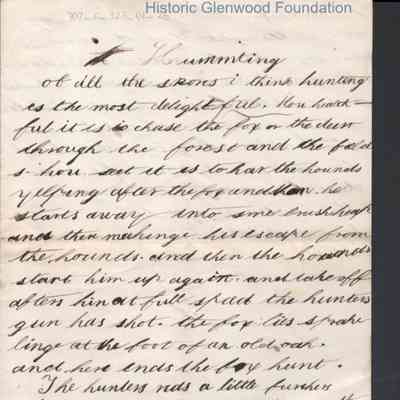 Historic Glenwood Foundation
Hummting
of all the skorts i think hunting
is the most delightful. How
ful it is to chase the fox or the deer
through the forest and the fields
s. how it is to har the hounds
yelping after the fox and then he
starts away into some brush heap
and then makinge his escape from
the hounds. and then the hounds
start him up again. and take off
afters him at full spead the hunters
gun has shot. the fox lies
linge at the foot of an old oak.
and here ends the fox hunt.
The hunters rids a little further